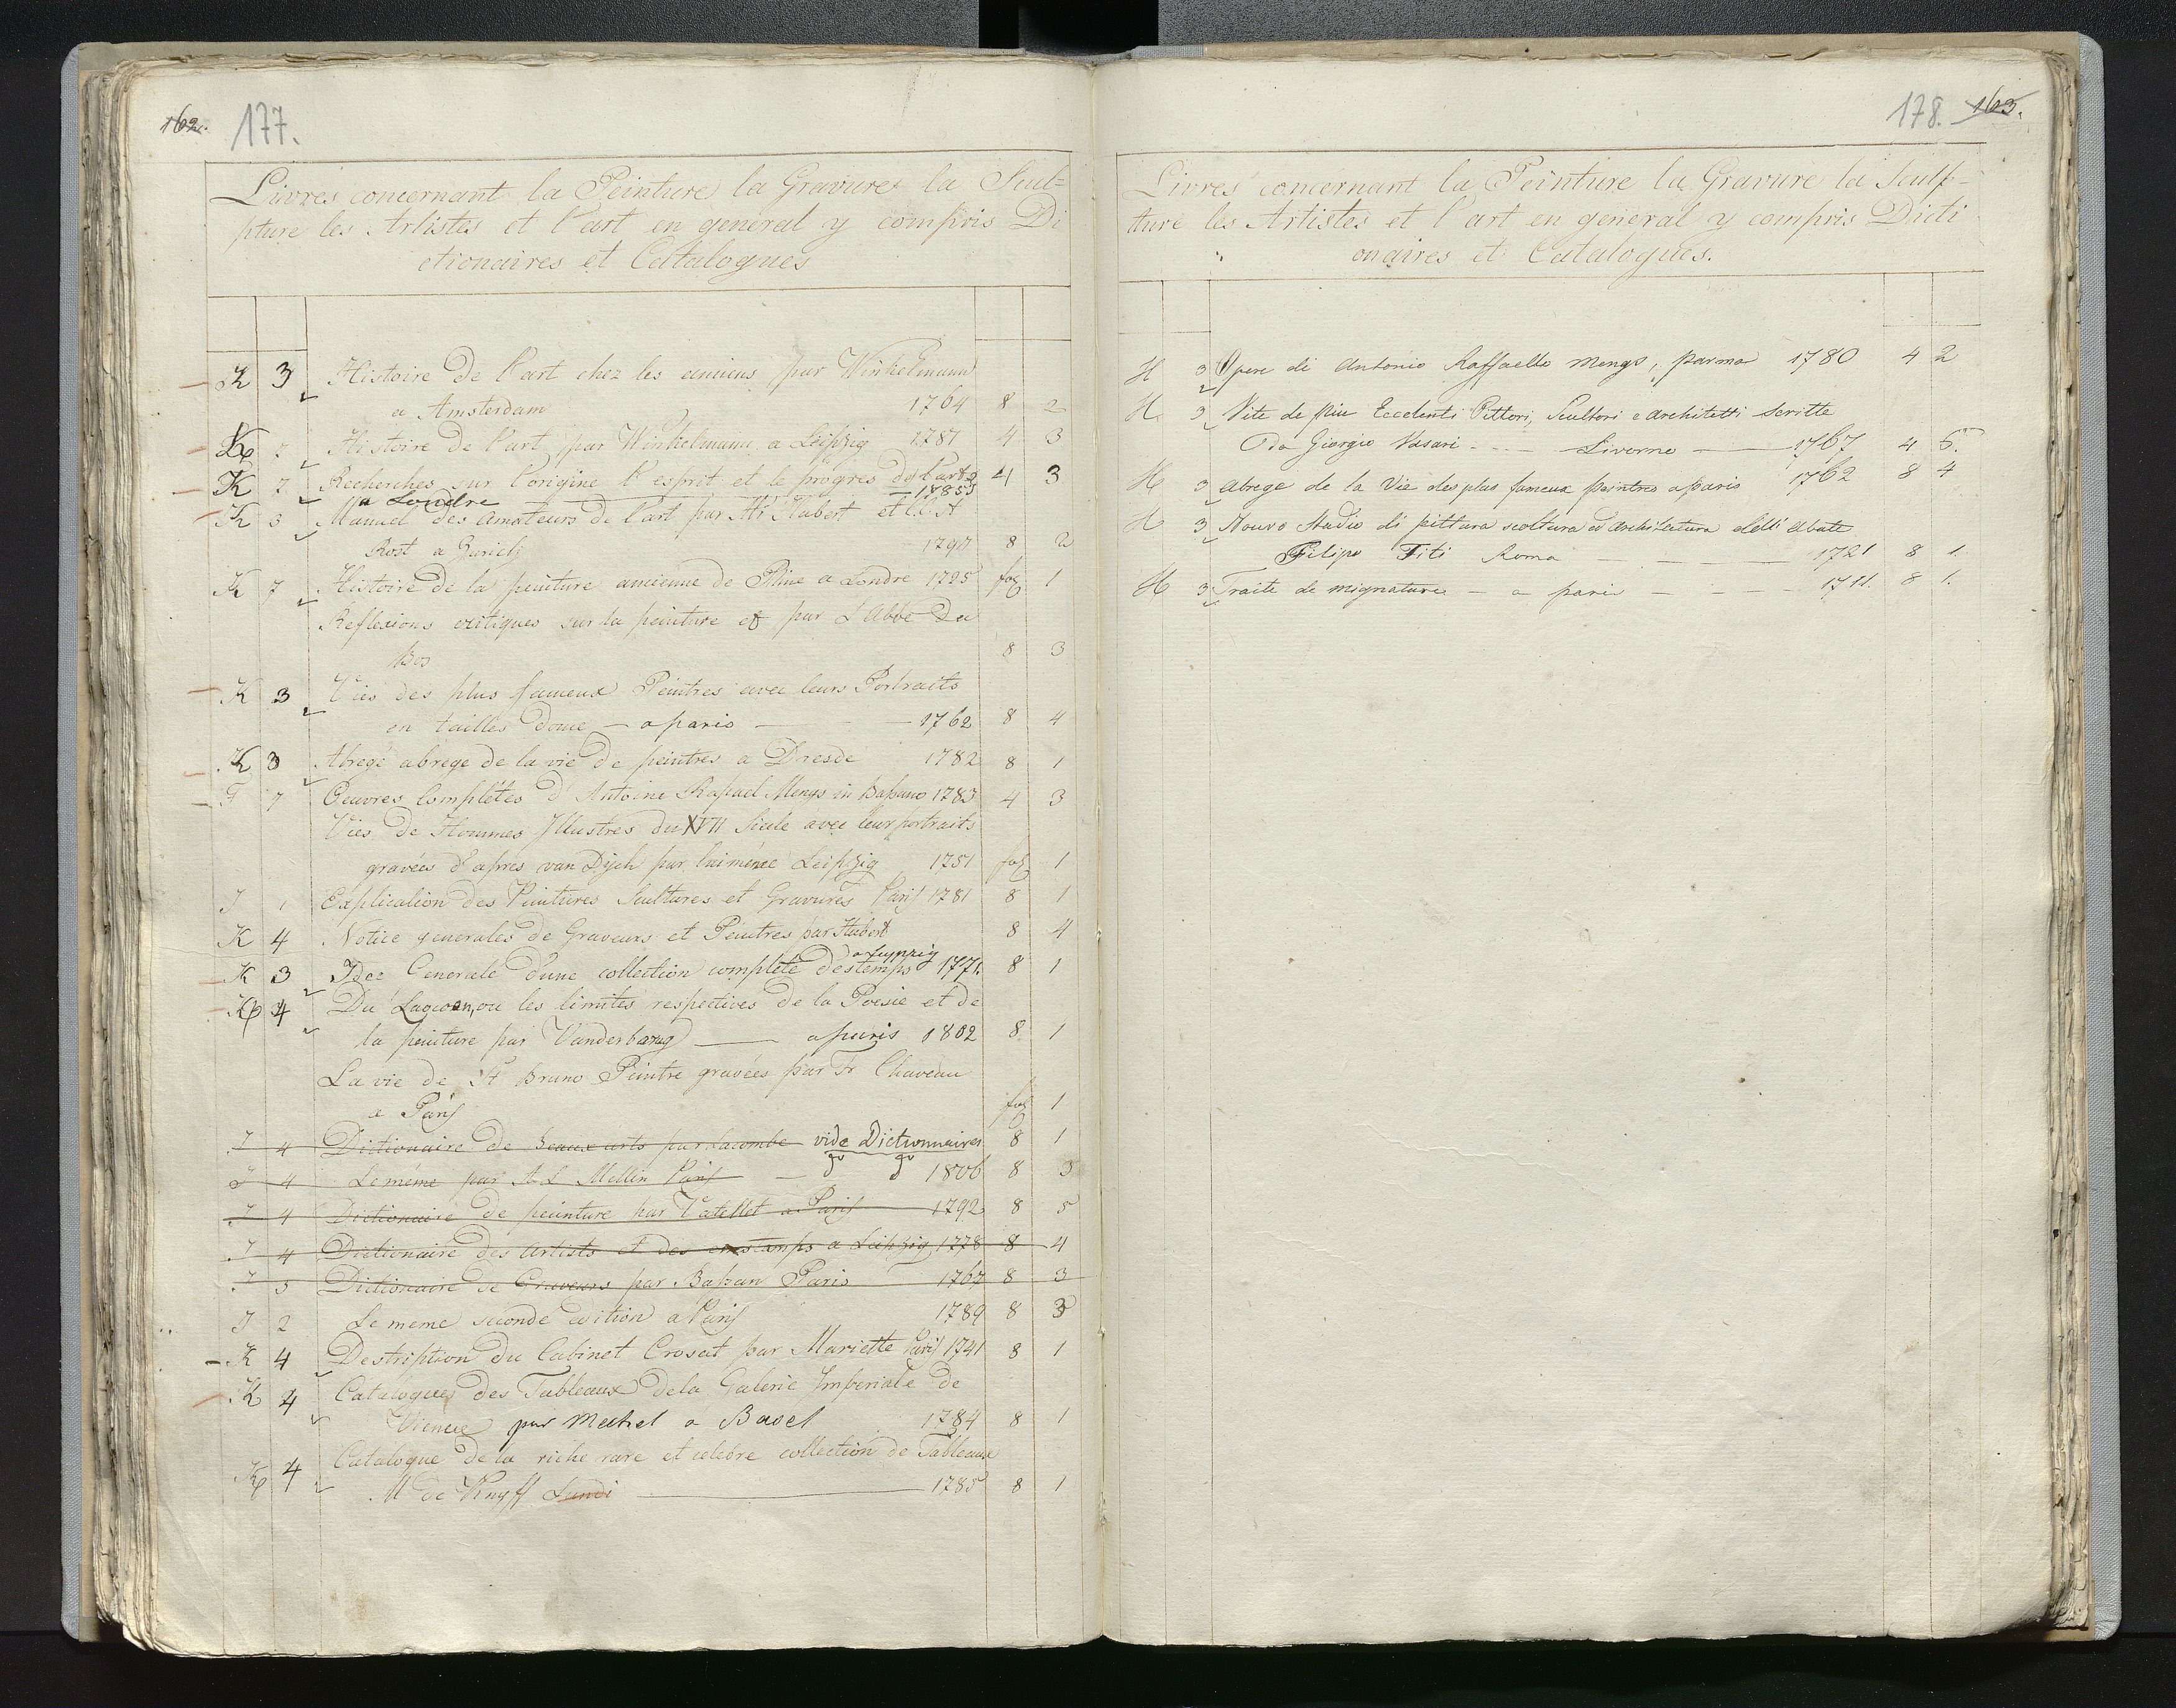 162. 177.
Livres concernant la Peinture la Gravure la Scul=
pture les Artistes et l'art en general y compris Di
ctionaires et Catalogues
K 3 Histoire De l'art chez les anciens par Winkelmann
a Amsterdam 1764 8 2
Histoire de l'art par Winkelmann a Leipzig 1781 4 3
K 7 Recherches sur l'origine l'esprit et le progres de l'arts 4 3
a Londre 1785
K 3 Manuel des Amateurs de l'art par Mr Hubert et C. C. H
Rost a Zurich 1797 8 2
K 7 Histoire de la peinture ancienne de Pline a Londre 1725 fog 1
Reflexions critiques sur la peinture et par L'Abbe Du
Bos 8 3
K 3 Vies des plus fameux Peintres avec leurs Portraits
en tailles douce - a paris - 1762 8 4
K 3 Abregé abrege de la vie De peintres a Dresde 1782 8 1
F 7 Oeuvres Completes d'Antoine Rapael Mengs in Bassano 1783 4 3
Vies de Hommes Illustres du XVII Siecle avec leur portraits
gravées d'apres van Dijck par luimeme Leipzig 1751 fog 1
J 1 Explication des Peintures Scultures et Gravures Paris 1781 8 1
K 4 Notice generales de Graveurs et Peintres par Hubert 8 4
a Leypzig
K 3 Idee Generale d'une collection complete d'estemps 1771. 8 1
K 4 Du Laocoon, ou les limites respectives de la Poesie et de
la peinture par Vanderbourg a paris 1802 8 1
La vie de St Bruno Peintre gravées par Fr Chaveau
a Paris fog 1
J 4 Dictionaire de beaux arts par Lacombe vide Dictionnaires 8 1
J 4 Le même par A L Mellin Paris - do do 1806 8 3
J 4 Dictionaire de peinture par Vatellet a Paris 1792 8 5
J 4 Dictionaire des Artists et des estamps a Leipzig 1778 8 4
J 3 Dictionaire de Graveurs par Basan Paris 1767 8 3
J 2 Le meme seconde edition a Paris 1789 8 3
K 4 Destription du Cabinet Crosat par Mariette Paris 1741 8 1
K 4 Catalogues des Tableaux de la Galerie Imperiale de
Vienne par Mechel a Basel 1784 8 1
K 4 Catalogue de la riche rare et celebre collection de Tableaux
M de Knyff Lundi 1785 8 1
178. 163.
Livres concernant la Peinture la Gravure la Sculp-
ture les Artistes et l'art en general y compris Dicti
onaires et Catalogues.
H 3 Opere di Antonio Raffaello Mengs, parma 1780 4 2
H 3 Vite de piu Eccelenti Pittori, Scultori e Architetti scritte
Da Giorgio Vasari - - - Livorno 1767 4 5.
H 3 abrege de la Vie des plus fameux peintres a paris 1762 8 4
H 3 Nouvo Studio di pittura scoltura ed architectura dell' Abate
Filipo Titi Roma 1721 8 1.
H 3 Traite de mignature - a paris - - - 1711. 8 1.